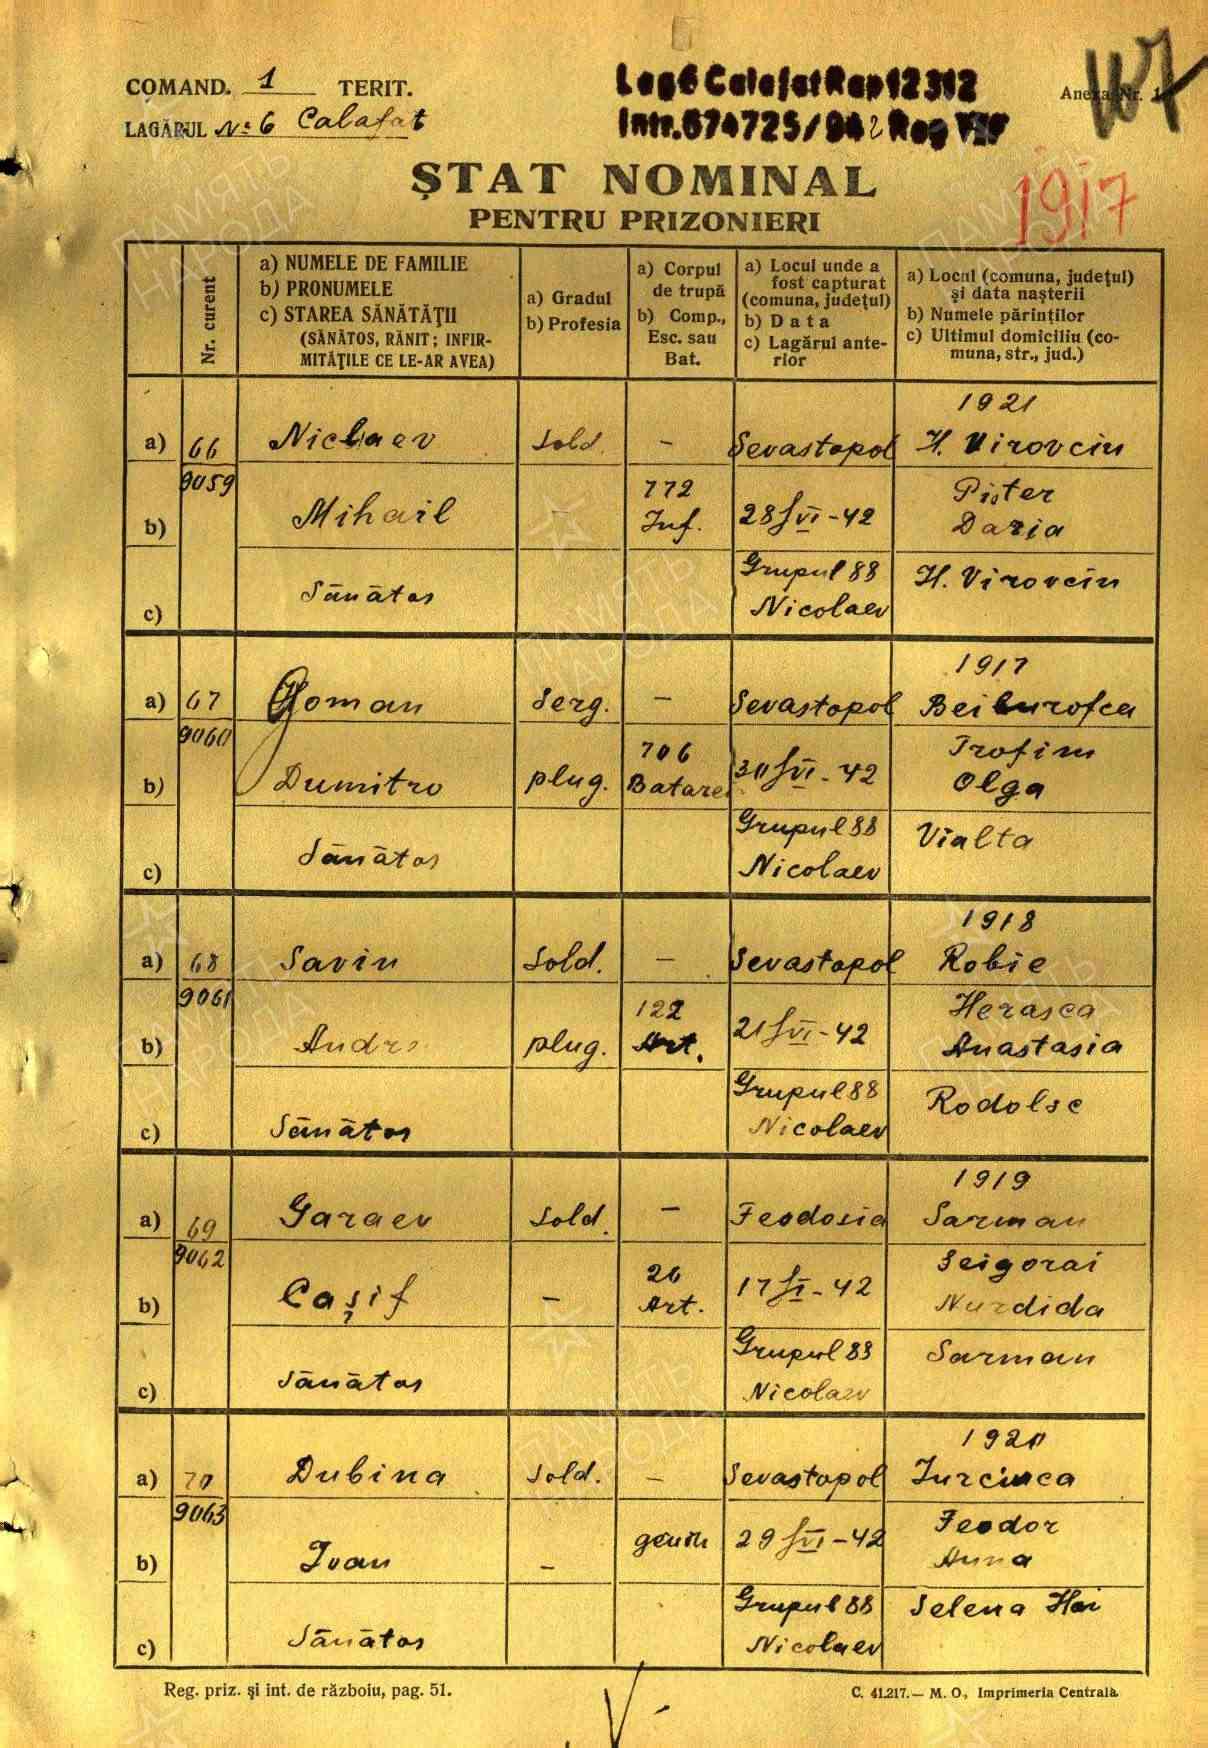 COMAND. 1 TERIT.
LAGĂRUL No 6 Calafat
Lag 6 Calafat Rap 12312
Intr. 674725/942 Reg
Anexa Nr. 1
107
1917
ŞTAT NOMINAL
PENTRU PRIZONIERI
Nr. curent
a) NUMELE DE FAMILIE
b) PRONUMELE
c) STAREA SĂNĂTĂŢII
(SĂNĂTOS, RĂNIT; INFIR-
MITĂŢILE CE LE-AR AVEA)
a) Gradul
b) Profesia
a) Corpul
de trupă
b) Comp.,
Esc. sau
Bat.
a) Locul unde a
fost capturat
(comuna, judeţul)
b) Data
c) Lagărul ante-
rior
a) Locul (comuna, judeţul)
şi data naşterii
b) Numele părinţilor
c) Ultimul domiciliu (co-
muna, str., jud.)
1921
a) 66 Niclaev Sold. – Sevastopol H. Virovciu
9059
b) Mihail – 772 Inf. 28/VI-42 Pister Daria
c) Sănătos Grupul 88 Nicolaev H. Virovciu
1917
a) 67 Goman Serg. – Sevastopol
9060
b) Dumitro plug. 706 Batarei 30/VI-42 Trofim Olga
c) Sănătos Grupul 88 Nicolaev Vialta
1918
a) 68 Savin Sold. – Sevastopol Robie
9061
b) Andre plug. 122 Art. 21/VI-42 Herasca Anastasia
c) Sănătos Grupul 88 Nicolaev Rodolse
1919
a) 69 Garaev Sold. – Feodosia Sarman
9062
b) Caşif – 26 Art. 17/I-42 Seigorai Nurdida
c) Sănătos Grupul 88 Nicolaev Sarman
1920
a) 70 Dubina Sold. – Sevastopol
9063
b) Ivan – geniu 29/VI-42 Feodor Anna
c) Sănătos Grupul 88 Nicolaev Selena Hai
Reg. priz. şi int. de războiu, pag. 51.
C. 41.217.— M. O., Imprimeria Centrală.
ПАМЯТЬ
НАРОДА